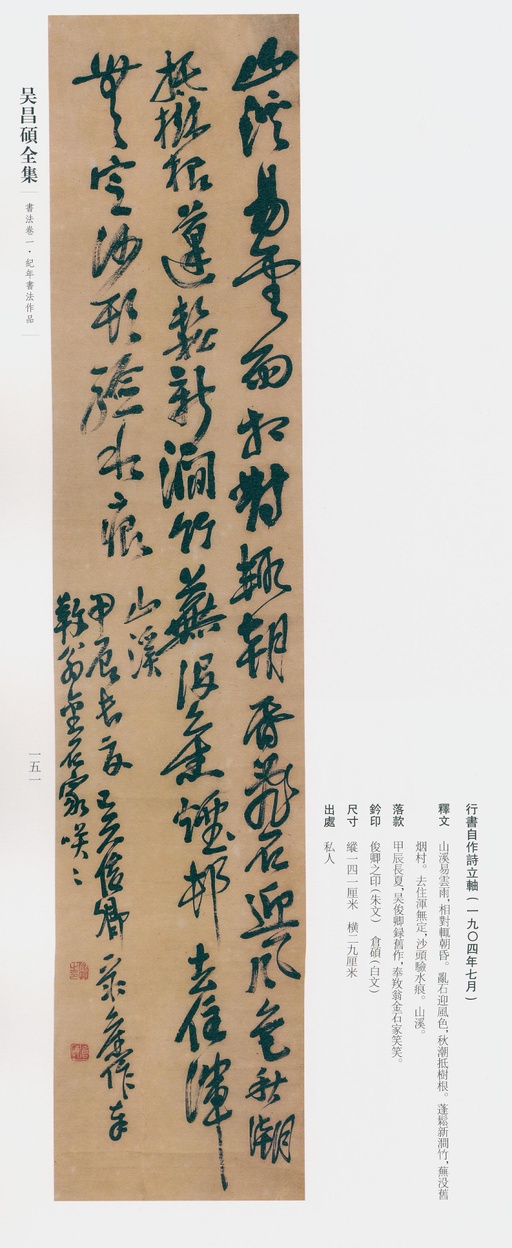 行書自作詩立軸（一九〇四年七月）
釋文 山溪易雲雨，相對輒朝昏。亂石迎風色，秋潮抵樹根。蓬鬆新澗竹，蕪没舊
烟村。去住渾無定，沙頭驗水痕。山溪。
落款 甲辰長夏，吴俊卿録舊作，奉敩翁金石家笑笑。
鈐印 俊卿之印（朱文） 倉碩（白文）
尺寸 縱一四一厘米 横二九厘米
出處 私人
山溪易雲雨相對輒朝昏亂石迎風色秋潮
抵樹根蓬鬆新澗竹蕪没舊煙邨去住渾
無定沙頭驗水痕
山溪
甲辰長夏吴俊卿录舊作奉
敩翁金石家咲〻
吴昌碩全集
書法卷一·紀年書法作品
一五一